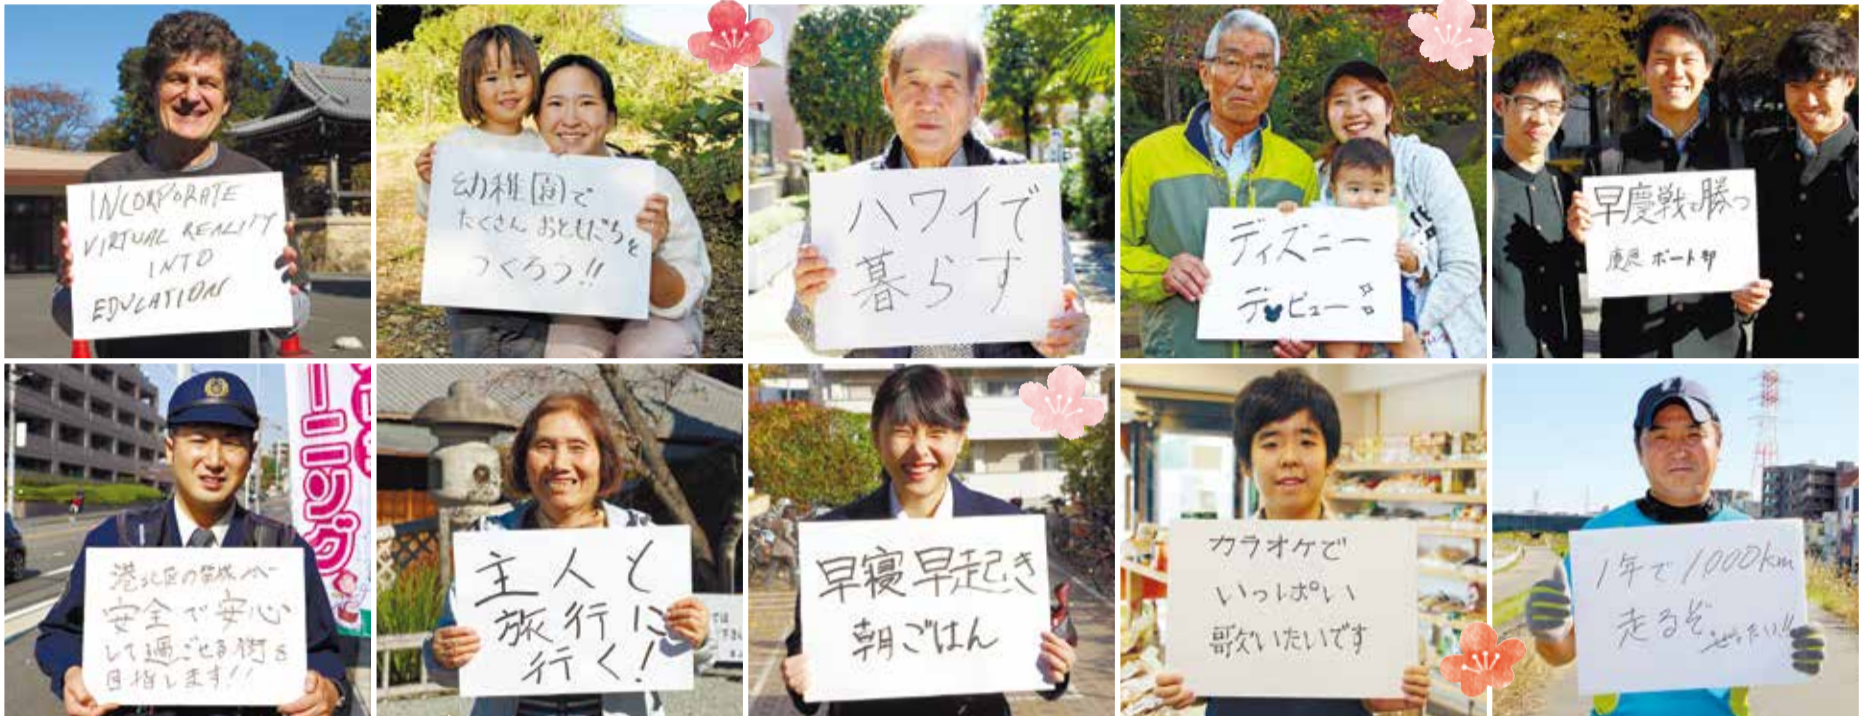 INCORPORATE
VIRTUAL REALITY
INTO
EDUCATION
幼稚園で
たくさん おともだちを
つくろう!!
ハワイで
暮らす
ディズニー
デビュー
早慶戦勝つ
慶應ボート部
ーニング
港北区の皆様が
安全で安心
して過ごせる街を
目指します!!
主人と
旅行に
行く!
早寝早起き
朝ごはん
カラオケで
いっぱい
歌いたいです
1年で1000km
走るぞ
ぜったい!!